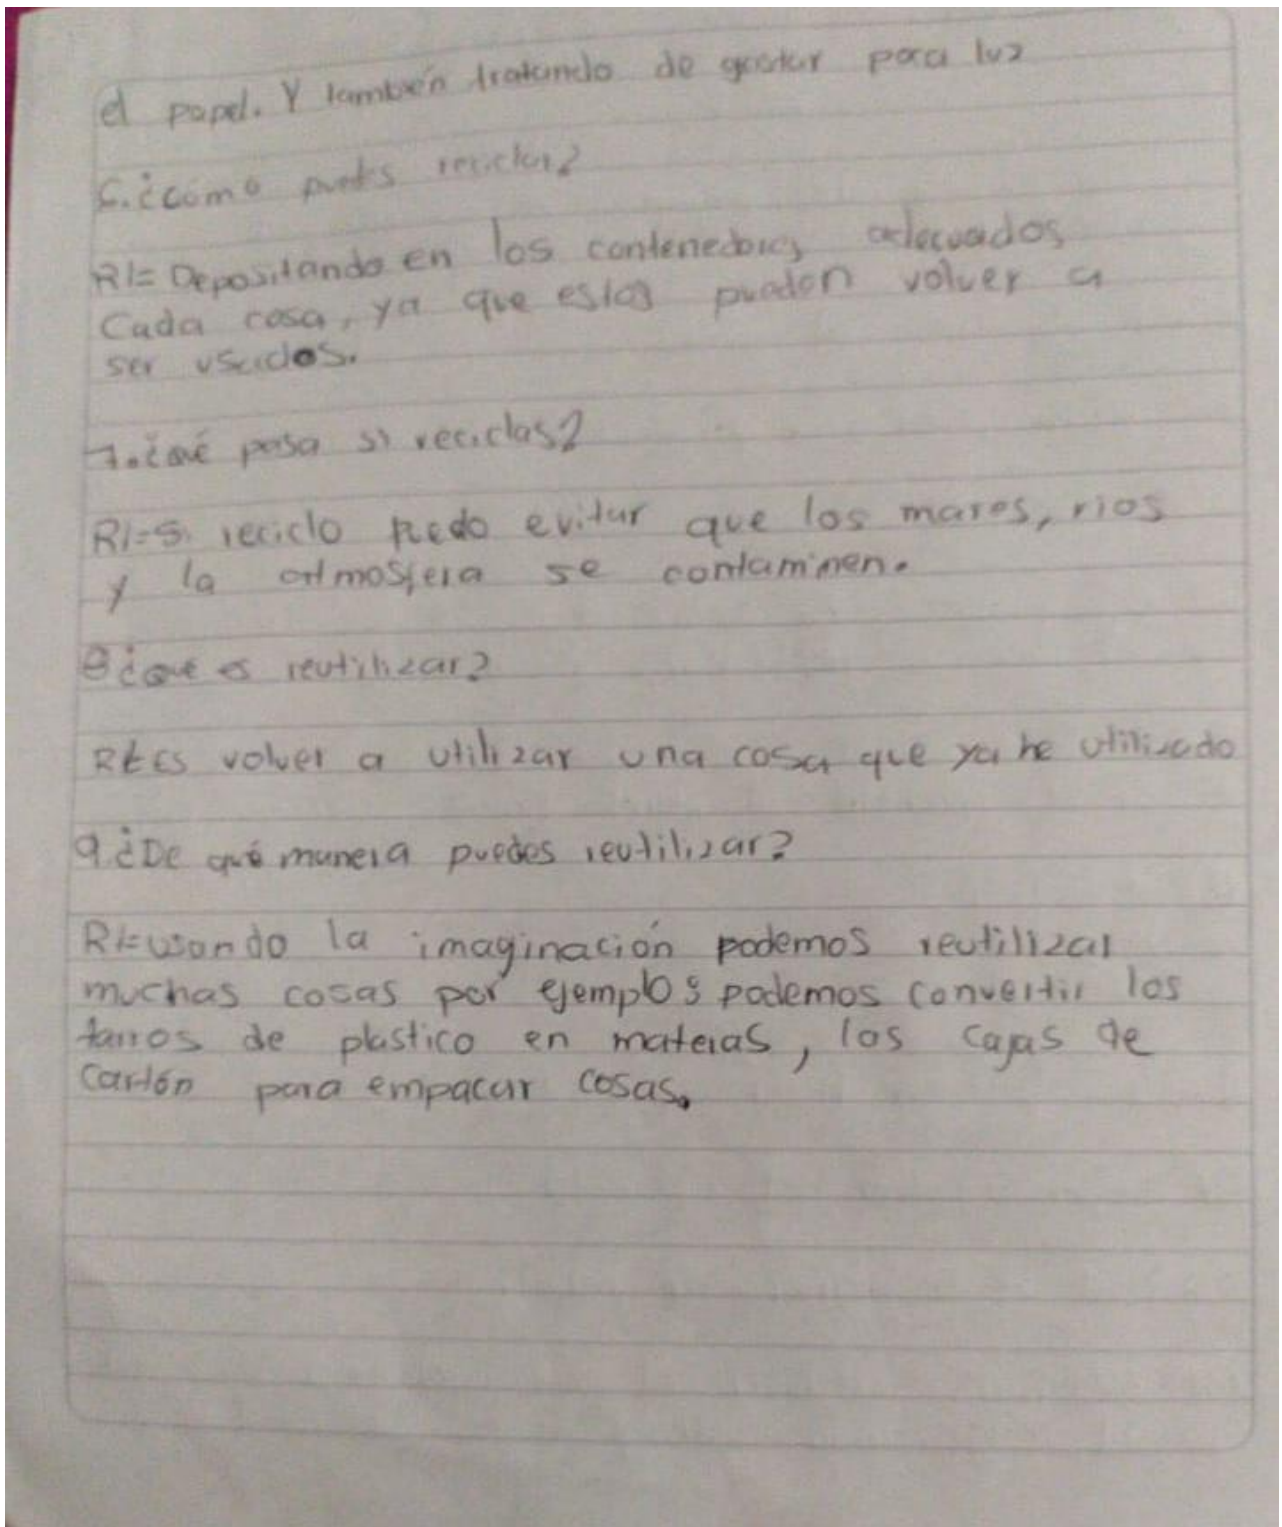 el papel. Y también tratando de gastar poca luz
6. ¿cómo puedes reciclar?
R/= Depositando en los contenedores adecuados
Cada cosa, ya que estos pueden volver a
ser usados.
7. ¿Qué pasa si reciclas?
R/= Si reciclo puedo evitar que los mares, rios
y la atmosfera se contaminen.
8 ¿Que es reutilizar?
R/= Es volver a utilizar una cosa que ya he utilizado
9 ¿De qué manera puedes reutilizar?
R/= usando la imaginación podemos reutilizar
muchas cosas por ejemplos podemos convertir los
tarros de plastico en materas, las cajas de
Cartón para empacar cosas.